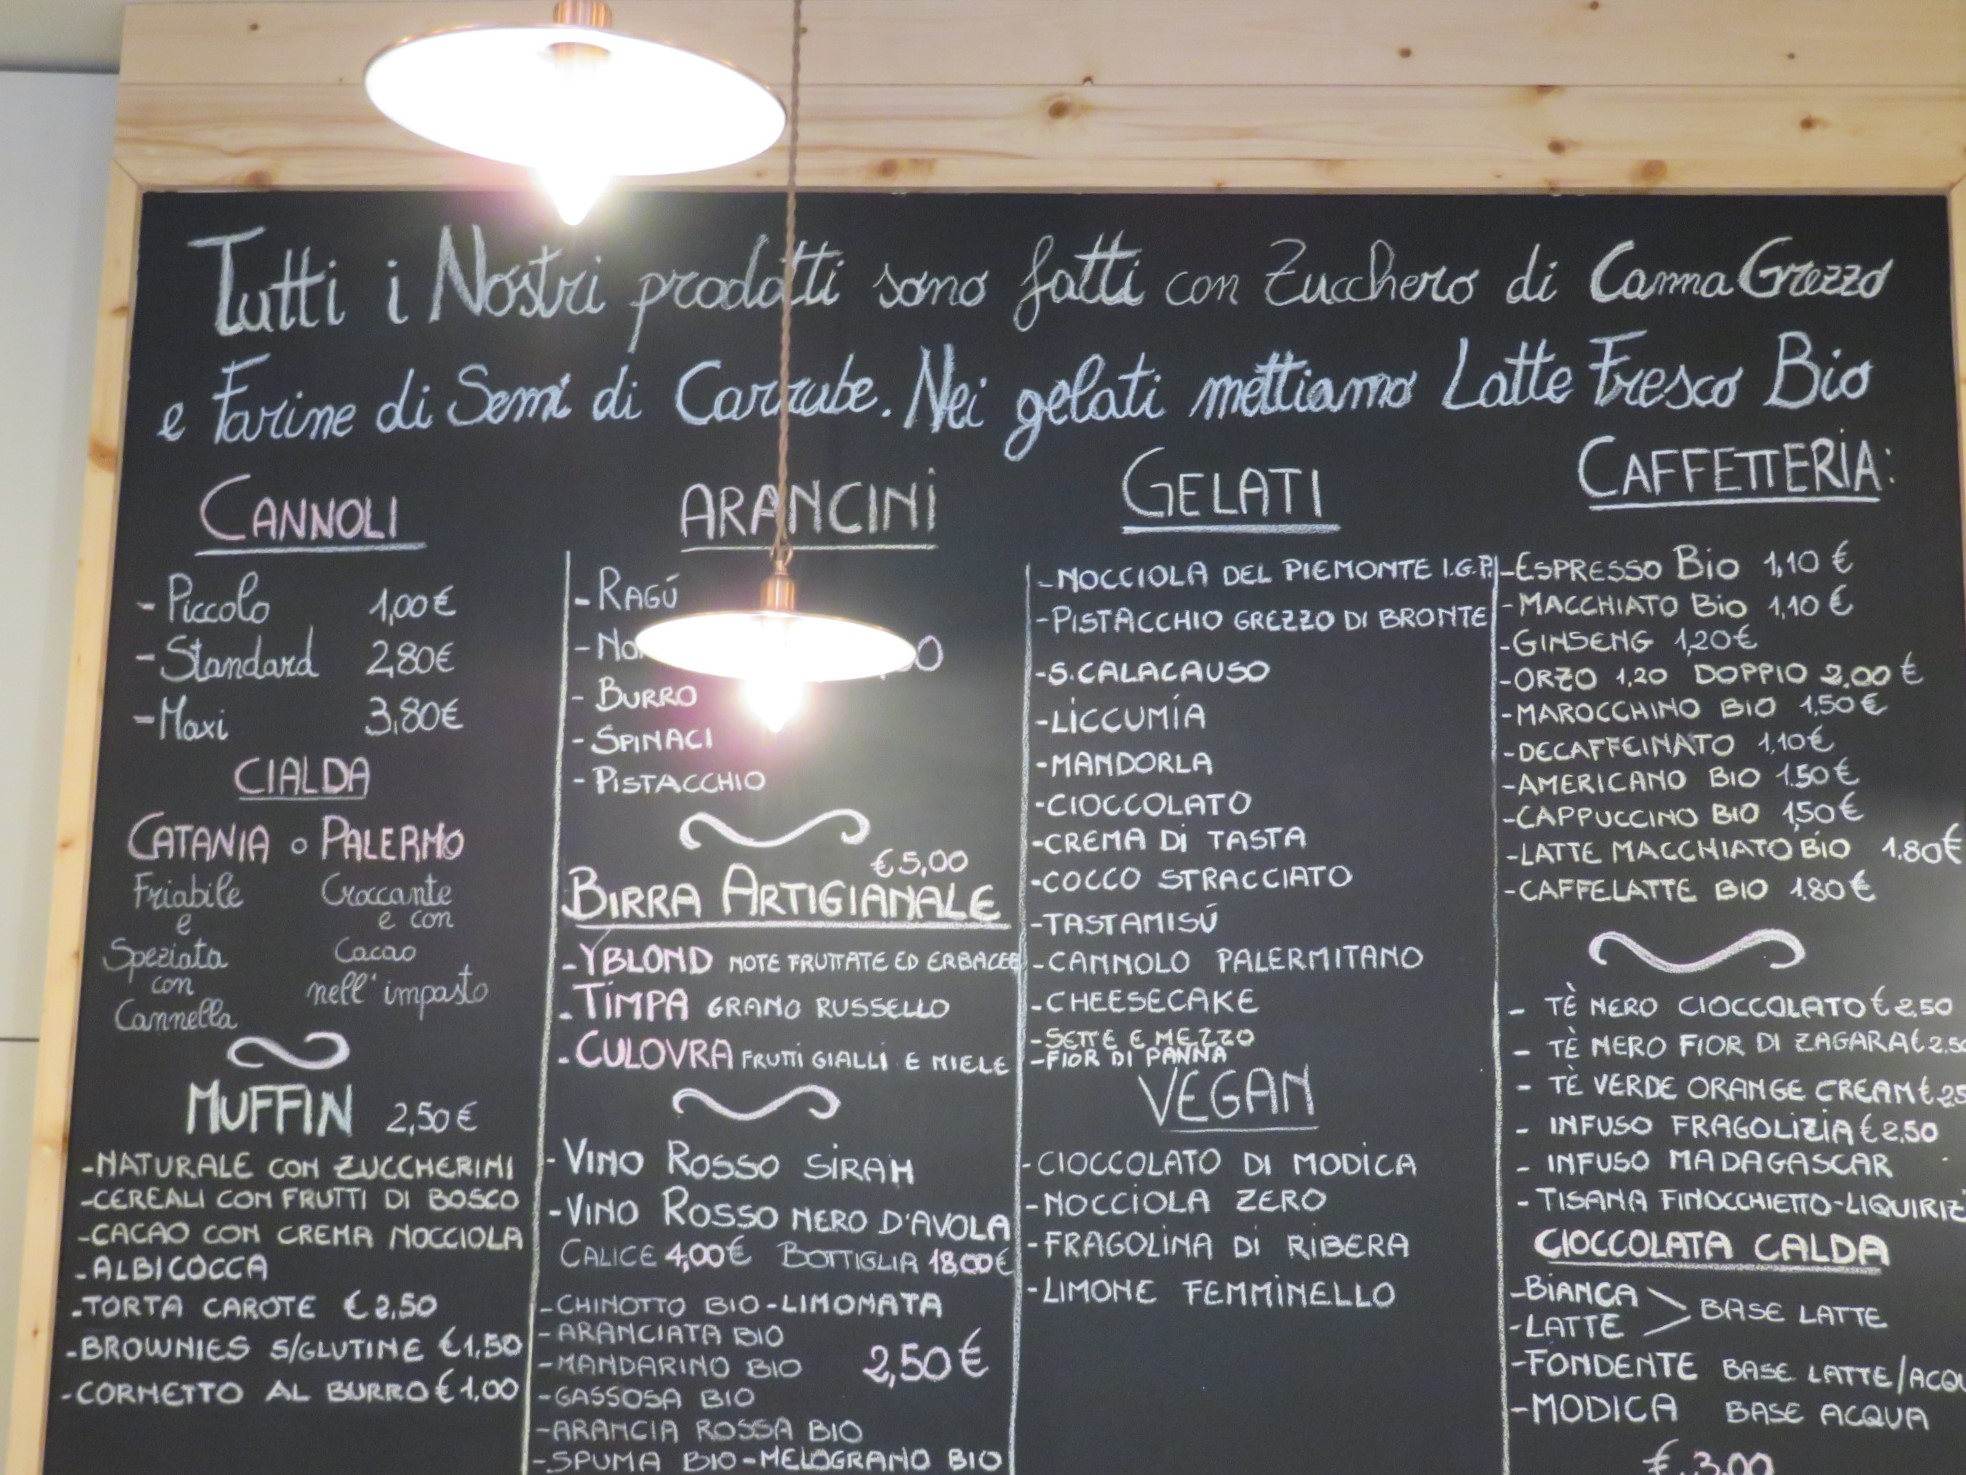 Tutti i Nostri prodotti sono fatti con Zucchero di Canna Grezzo
e Farine di Semi di Carrube. Nei gelati mettiamo Latte Fresco Bio
CANNOLI
- Piccolo 1,00 €
- Standard 2,80 €
- Maxi 3,80 €
CIALDA
CATANIA o PALERMO
Friabile Croccante
e e con
Speziata Cacao
con nell'impasto
Cannella
MUFFIN 2,50 €
- NATURALE CON ZUCCHERINI
- CEREALI CON FRUTTI DI BOSCO
- CACAO CON CREMA NOCCIOLA
- ALBICOCCA
- TORTA CAROTE € 2,50
- BROWNIES S/GLUTINE € 1,50
- CORNETTO AL BURRO € 1,00
ARANCINI
- RAGÚ
- BURRO
- SPINACI
- PISTACCHIO
€ 5,00
BIRRA ARTIGIANALE
- YBLOND NOTE FRUTTATE ED ERBACEE
- TIMPA GRANO RUSSELLO
- CULOVRA FRUTTI GIALLI E MIELE
- VINO ROSSO SIRAH
- VINO ROSSO NERO D'AVOLA
CALICE 4,00 € BOTTIGLIA 18,00 €
- CHINOTTO BIO - LIMONATA
- ARANCIATA BIO
- MANDARINO BIO 2,50 €
- GASSOSA BIO
- ARANCIA ROSSA BIO
- SPUMA BIO - MELOGRANO BIO
GELATI
- NOCCIOLA DEL PIEMONTE I.G.P.
- PISTACCHIO GREZZO DI BRONTE
- S. CALACAUSO
- LICCUMÍA
- MANDORLA
- CIOCCOLATO
- CREMA DI TASTA
- COCCO STRACCIATO
- TASTAMISÚ
- CANNOLO PALERMITANO
- CHEESECAKE
- SETTE E MEZZO
- FIOR DI PANNA
VEGAN
- CIOCCOLATO DI MODICA
- NOCCIOLA ZERO
- FRAGOLINA DI RIBERA
- LIMONE FEMMINELLO
CAFFETTERIA:
- ESPRESSO BIO 1,10 €
- MACCHIATO BIO 1,10 €
- GINSENG 1,20 €
- ORZO 1,20 DOPPIO 2,00 €
- MAROCCHINO BIO 1,50 €
- DECAFFEINATO 1,10 €
- AMERICANO BIO 1.50 €
- CAPPUCCINO BIO 1,50 €
- LATTE MACCHIATO BIO 1.80 €
- CAFFELATTE BIO 1.80 €
- TÈ NERO CIOCCOLATO € 2,50
- TÈ NERO FIOR DI ZAGARA € 2.50
- TÈ VERDE ORANGE CREAM €
- INFUSO FRAGOLIZIA € 2.50
- INFUSO MADAGASCAR
- TISANA FINOCCHIETTO-
CIOCCOLATA CALDA
- BIANCA
- LATTE BASE LATTE
- FONDENTE BASE LATTE/
- MODICA BASE ACQUA
€ 3,00